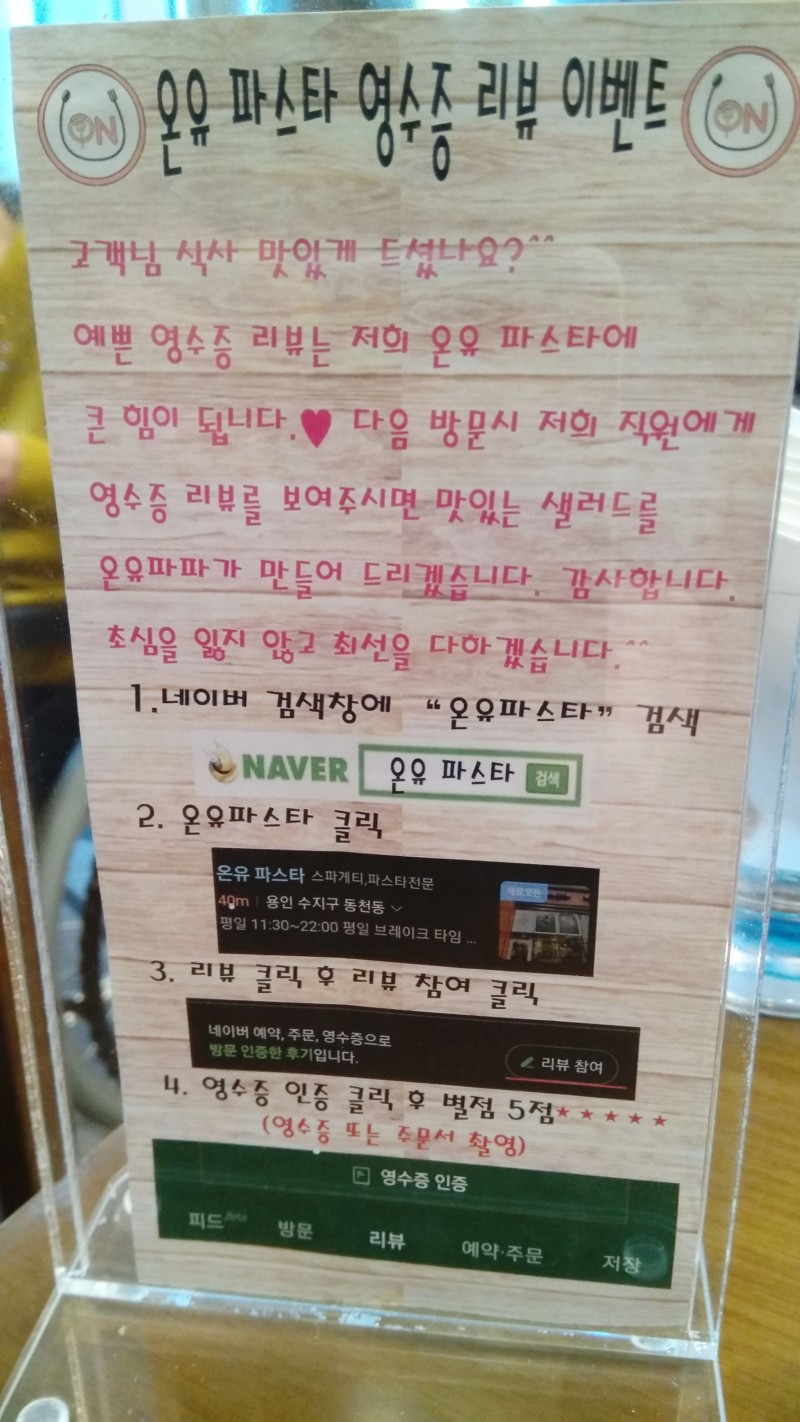 온유 파스타 영수증 리뷰 이벤트
ON
ON
고객님 식사 맛있게 드셨나요?^^
예쁜 영수증 리뷰는 저희 온유 파스타에
큰 힘이 됩니다.♥ 다음 방문시 저희 직원에게
영수증 리뷰를 보여주시면 맛있는 샐러드를
온유파파가 만들어 드리겠습니다. 감사합니다.
초심을 잃지 않고 최선을 다하겠습니다.^^
1.네이버 검색창에 “온유파스타” 검색
NAVER 온유 파스타 검색
2. 온유파스타 클릭
온유 파스타 스파게티,파스타전문
새로오픈
40m 용인 수지구 동천동
평일 11:30~22:00 평일 브레이크 타임 ...
3. 리뷰 클릭 후 리뷰 참여 클릭
네이버 예약, 주문, 영수증으로
방문 인증한 후기입니다.
리뷰 참여
4. 영수증 인증 클릭 후 별점 5점★★★★★
(영수증 또는 주문서 촬영)
영수증 인증
피드 Beta 방문 리뷰 예약·주문 저장